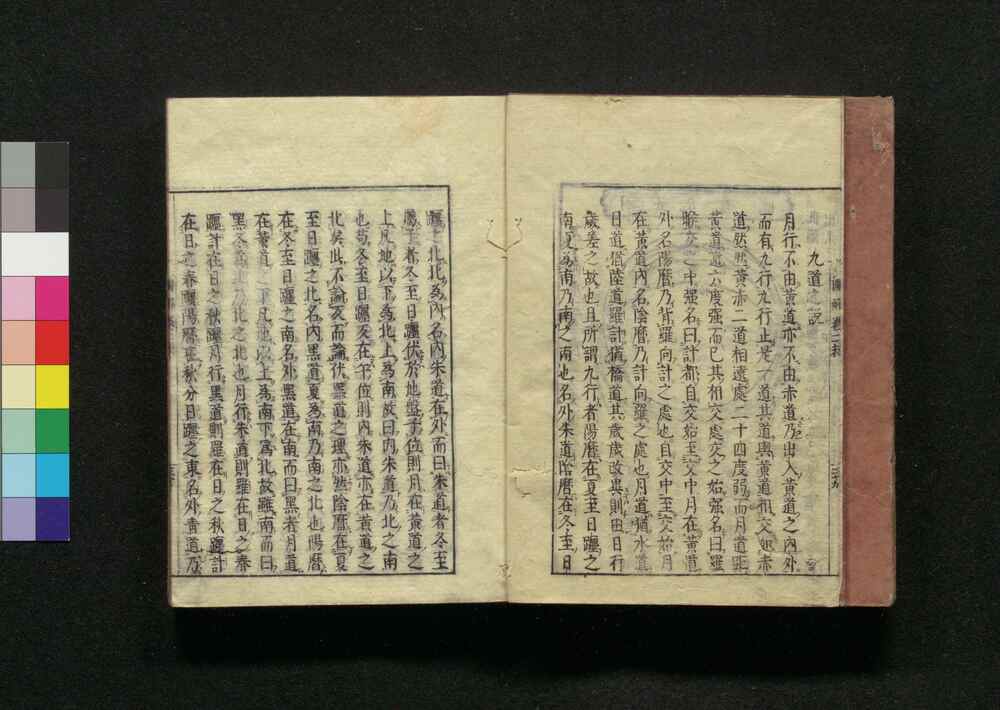 九道之說
月行不由黃道亦不由赤道乃出入黃道之內外
而有九行九行止是一道其道與黃道相交如赤
道然然黃赤二道相遠處二十四度弱而月道距
黃道遠六度强而已其相交處交之始强名曰羅
睺交之中强名曰計都自交始至交中月在黃道
外名陽曆乃背羅向計之處也自交中至交始月
在黃道內名陰曆乃計向羅之處也月道猶水道
日道猶陸道羅計猶橋道其歲歲改異則因日行
歲差之故也且所謂九行者陽曆在夏至日躔之
南夏爲南乃南之南也名外朱道陰曆在冬至日
躔之北北爲內名內朱道在外而曰朱道者冬至
爲子者冬至日躔伏於地盤子位則月在黃道之
上凡地以下爲北上爲南故曰內朱道乃北之南
也苟冬至日躔又在午位則內朱道亦在黃道之
北矣此不論交而論伏黑道之理亦然陰曆在夏
至日躔之北名內黑道夏爲南乃南之北也陽曆
在冬至日躔之南名外黑道在南而曰黑者月道
在黃道之下凡地以上爲南下爲北故雖南而曰
黑冬爲北乃北之北也月行朱道則羅在日之春
躔計在日之秋躔月行黑道則羅在日之秋躔計
在日之春躔陽曆在秋分日躔之東名外靑道乃